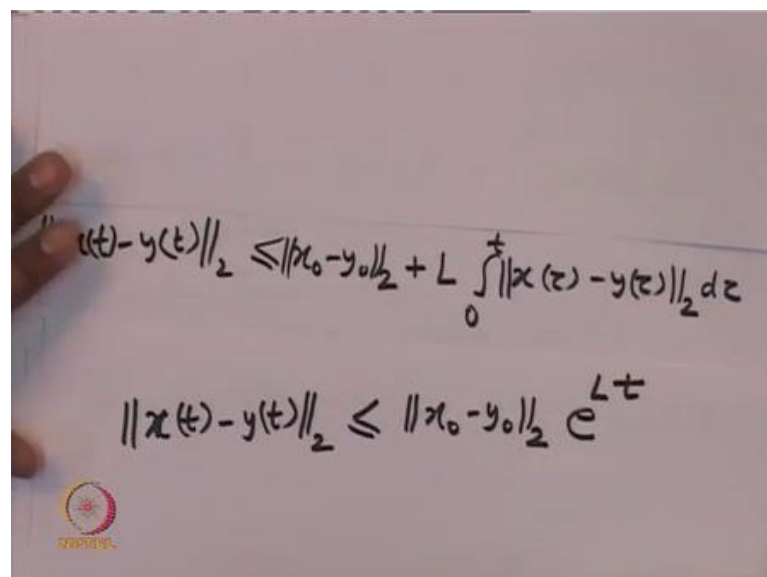 ‖x(t)-y(t)‖₂ ≤ ‖x₀-y₀‖₂ + L ∫₀ᵗ ‖x(τ)-y(τ)‖₂ dτ
‖x(t)-y(t)‖₂ ≤ ‖x₀-y₀‖₂ e^{Lt}